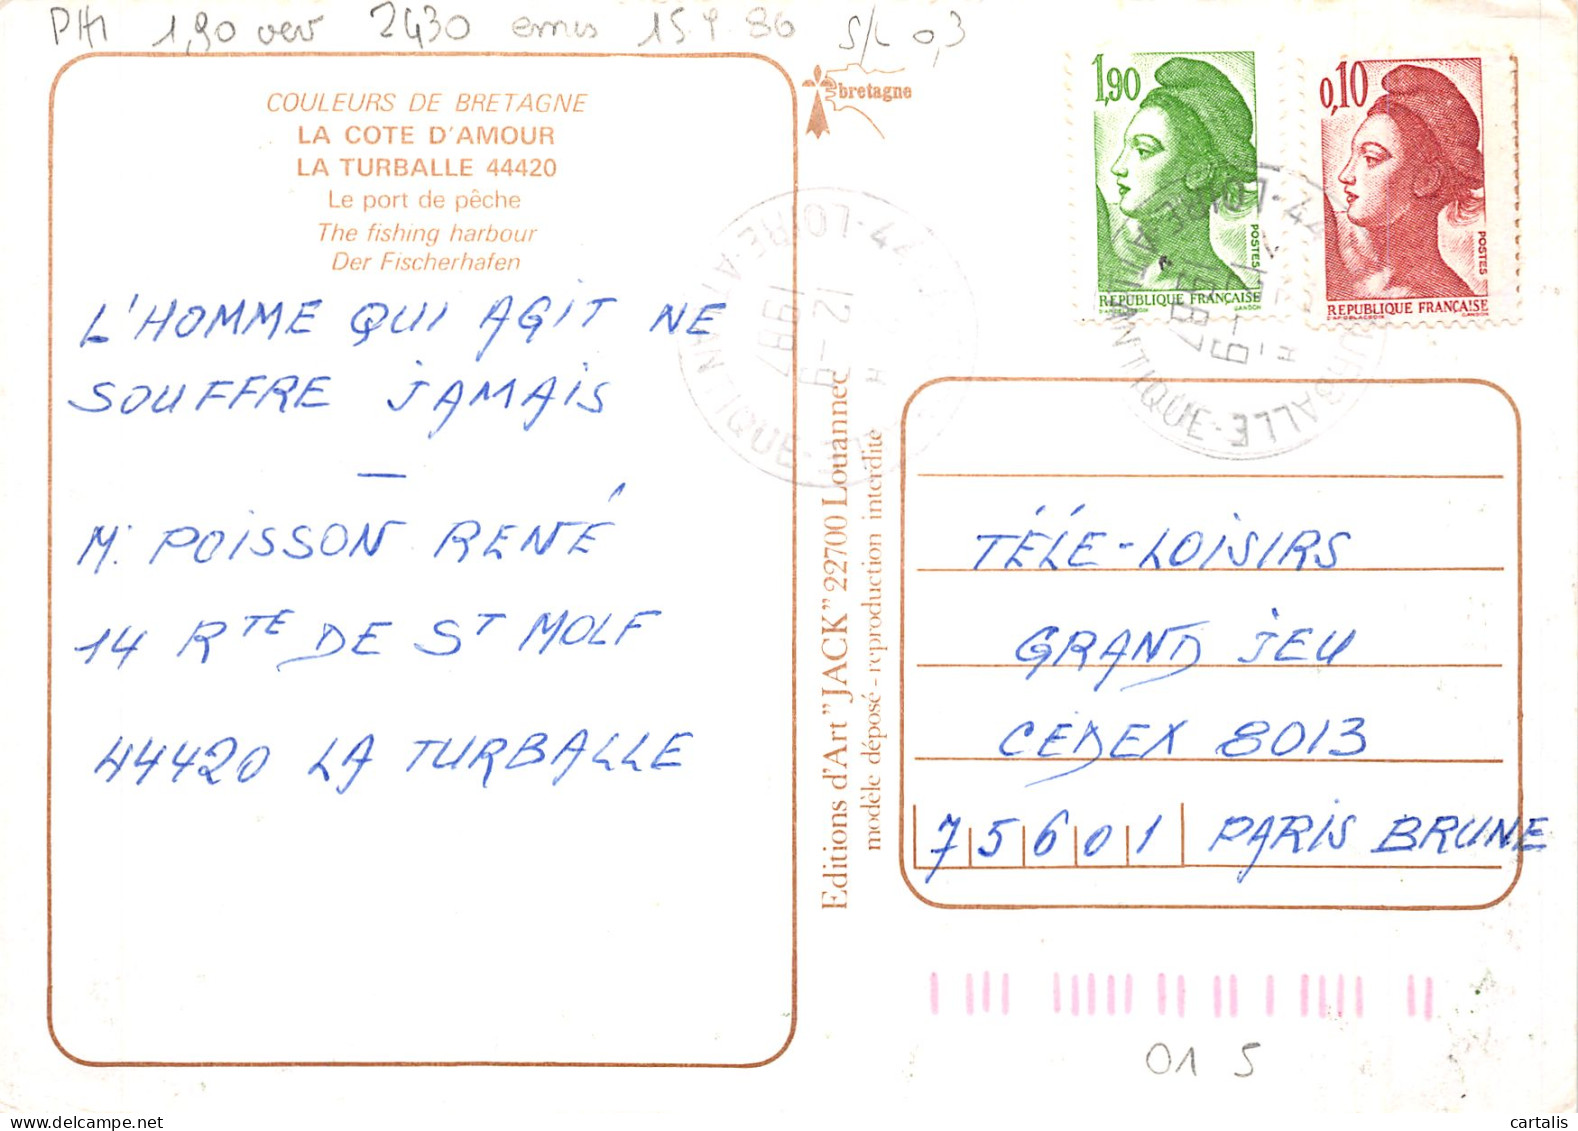 PH1 1,90 ver 2430 emis 15.9.86 S/L 0,3
COULEURS DE BRETAGNE
LA COTE D'AMOUR
LA TURBALLE 44420
Le port de pêche
The fishing harbour
Der Fischerhafen
L'HOMME QUI AGIT NE
SOUFFRE JAMAIS
—
M. POISSON RENÉ
14 RTE DE ST MOLF
44420 LA TURBALLE
bretagne
Editions d'Art "JACK" 22700 Louannec
modèle déposé - reproduction interdite
1,90
POSTES
REPUBLIQUE FRANÇAISE
0,10
POSTES
REPUBLIQUE FRANÇAISE
44 LOIRE-ATLANTIQUE
12-9
1987
LA TURBALLE - 44 LOIRE-ATLANTIQUE
12-9
1987
TÉLÉ-LOISIRS
GRAND JEU
CEDEX 8013
75601 PARIS BRUNE
01 5
cartalis